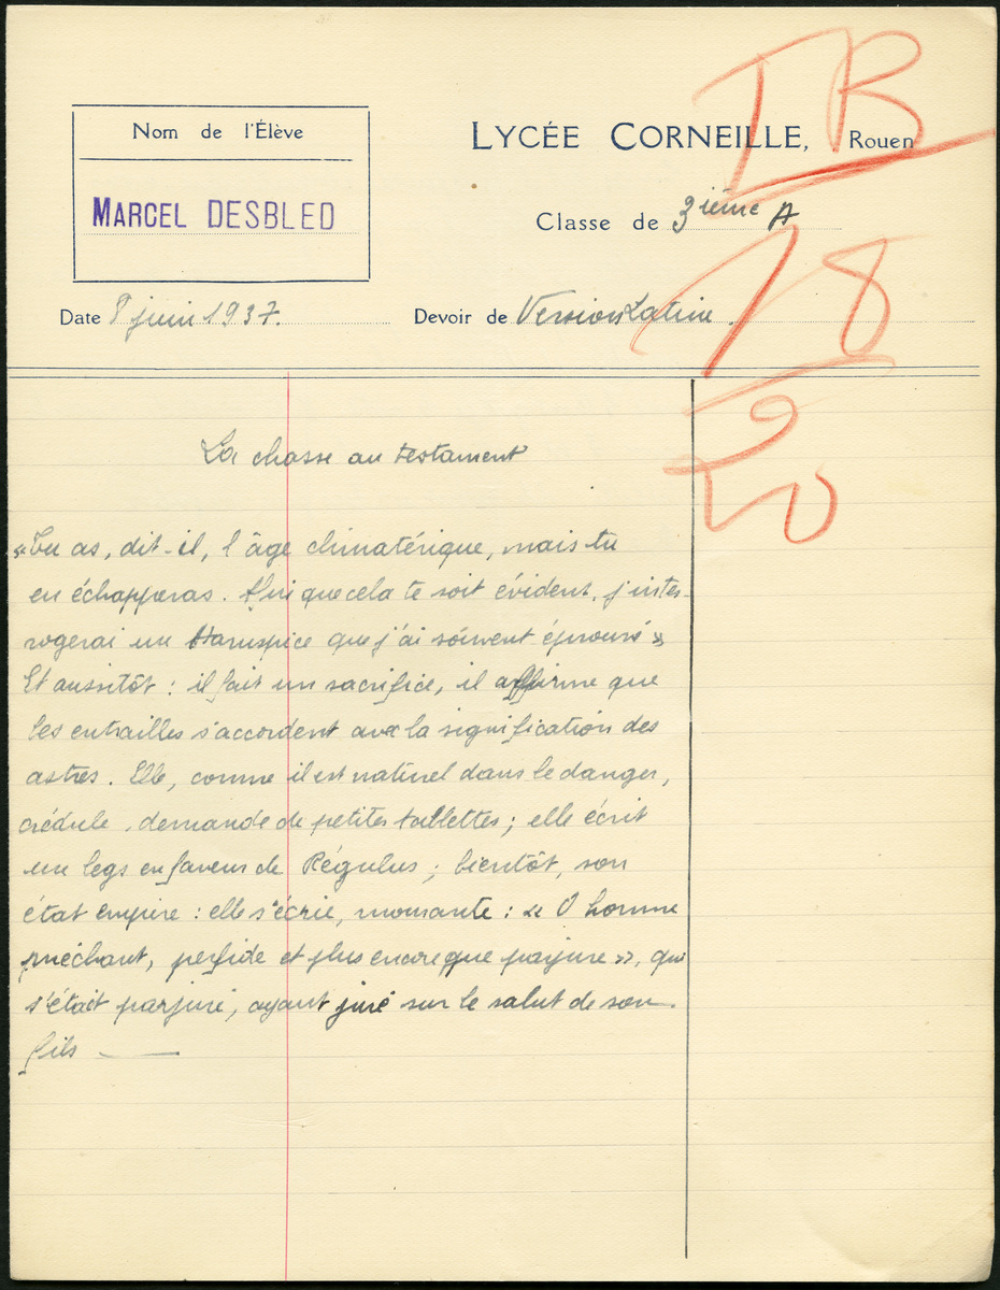 Nom de l'Élève
MARCEL DESBLED
LYCÉE CORNEILLE, Rouen
TB
Classe de 3ième A
18
20
Date 8 juin 1937.
Devoir de Version Latine.
La chasse au testament
« Tu as, dit-il, l'âge climatérique, mais tu
en échapperas. Afin que cela te soit évident, j'inter-
rogerai un Haruspice que j'ai souvent éprouvé »
Et aussitôt : il fait un sacrifice, il affirme que
les entrailles s'accordent avec la signification des
astres. Elle, comme il est naturel dans le danger,
crédule, demande de petites tablettes ; elle écrit
un legs en faveur de Régulus ; bientôt, son
état empire : elle s'écrie, mourante : « O homme
méchant, perfide et plus encore que parjure », qui
s'était parjuré, ayant juré sur le salut de son
fils